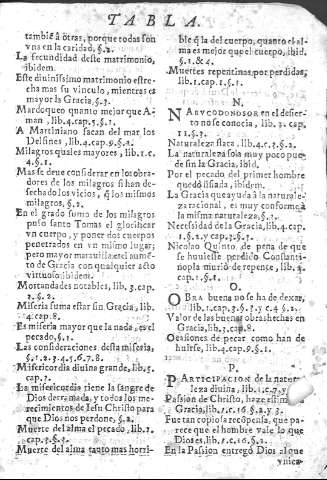 TABLA.
tambiẽ à otras, porque todas son
vna en la caridad, §.2.
La fecundidad deste matrimonio,
ibidem.
Este diuinissimo matrimonio estre-
cha mas su vinculo, mientras es
mayor la Gracia, §.3.
Mardoqueo quanto mejor que A-
man, lib.4.cap.5.§.1.
A Martiniano sacan del mar los
Delfines, lib.4.cap.9.§.2.
Milagros quales mayores, lib.1.c.
4.§.1.
Mas se deue considerar en los obra-
dores de los milagros si han de-
sechado los vicios, q̃ los mismos
milagros, §.2.
En el grado sumo de los milagros
puso santo Tomas el glorificar
vn cuerpo, y poner dos cuerpos
penetrados en vn mismo lugar;
pero mayor marauilla es el aumẽ-
to de Gracia con qualquier acto
virtuoso, ibidem.
Mortandades notables, lib.3.cap.
2.§.2.
Miseria suma estar sin Gracia, lib.
4.cap.8.
Es miseria mayor que la nada, es el
pecado, §.1.
Las consideraciones desta miseria,
§.1.2.3.4.5.6.7.8.
Misericordia diuina grande, lib.5.
cap.3.
La misericordia tiene la sangre de
Dios derramada, y todos los me-
recimientos de Iesu Christo para
que Dios nos perdone, §.2.
Muerte del alma el pecado, lib.2.
cap.3.§.1.
Muerte del alma tanto mas horri-
ble q̃ la del cuerpo, quanto el al-
ma es mejor que el cuerpo, ibid.
§.1.&4.
Muertes repentinas por perdidas,
lib.1.cap.1.§.1.
N.
NABVCODONOSOR en el desier-
to no se conocia, lib.2. cap.
11.§.3.
Naturaleza flaca, lib.4.c.3.§.2.
La naturaleza sola muy poco pue-
de sin la Gracia, ibid.
Por el pecado del primer hombre
quedò lisiada, ibidem.
La Gracia que ayuda à la naturale-
za racional, es muy conforme à
la misma naturaleza, §.3.
Necessidad de la Gracia, lib.4.cap.
1.§.1. y cap.3.§.1.
Nicolao Quinto de pena de que
se huuiesse perdido Constanti-
nopla muriò de repente, lib.4.
cap.1.§.1.
O.
OBRA buena no se ha de dexar,
lib.1.cap.3.§.3. y c.4.§.2.
Valor de las buenas obras hechas en
Gracia, lib.3.cap.8.
Ocasiones de pecar como han de
huirse, lib.4.cap.9.§.1.
P.
PARTICIPACION de la natura-
leza diuina, lib.1.c.7. y
Passion de Christo, haze estim
Gracia, lib.1.c.16.§.2.y 3.
Fue tan copiosa recõpensa, que pa-
rece que el hombre vale lo que
Dios es, lib.1.c.16.§.2.
En la Passion entregò Dios al que
vnica-